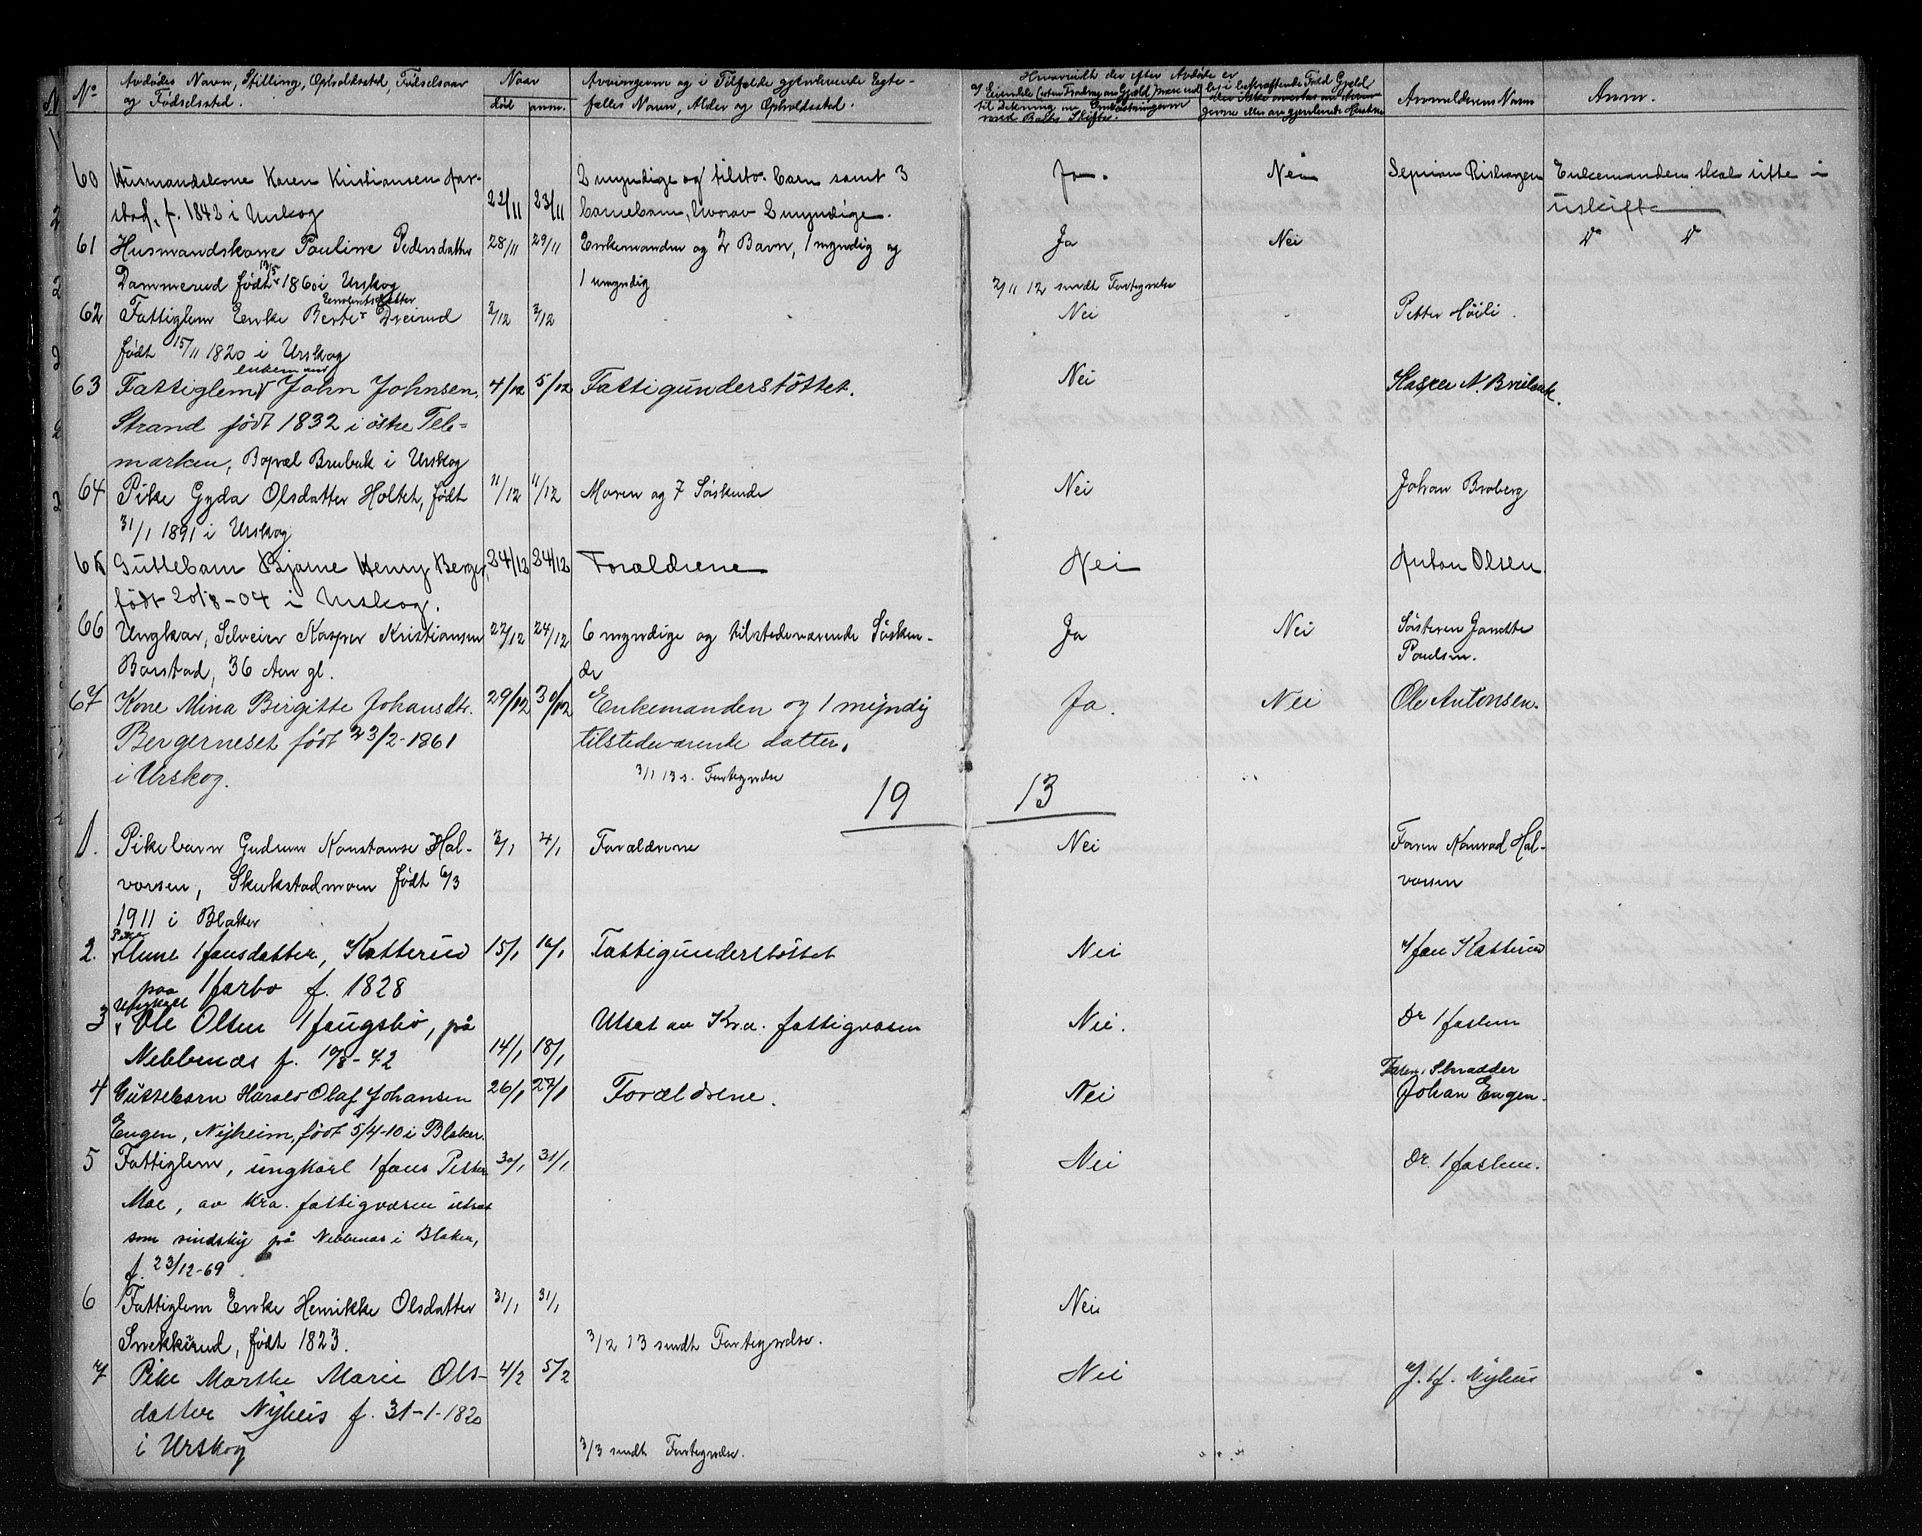 No Avdødes Navn, Stilling, Opholdssted, Fødselsaar og Fødselssted. Naar død anm. Arvingerne og i Tilfælde gjenlevende Egtefælles Navn, Alder og Opholdssted. Hvorvidt der efter Avdøde er Anmelderens Navn Anm.
60 Husmandskone Karen Kristiansen
f. 1842 i Urskog 22/11 23/11 2 myndige og tilsted. barn samt 3
barnebarn, hvorav 2 myndige. Ja. Nei Enkemanden skal sitte i
uskifte
61 Husmandskone Pauline Pedersdatter 28/11 29/11 Enkemanden og 2 Barn, 1 myndig og Ja Nei
Dammerud født 1860 i Urskog 1 umyndig 2/11 12 sendt Fortegnelse
62 Fattiglem Enke Berte Dreierud 3/12 Nei Petter Høili.
født 15/11 1820 i Urskog
63 Fattiglem enkemand John Johnsen 4/12 5/12 Fattigunderstöttet. Nei Kasper N. Brubak.
Strand født 1832 i östre Tele-
marken, Bopæl Brubak i Urskog
64 Pike Gyda Olsdatter Holtet, født 11/12 11/12 Moren og 7 Søskende Nei Johan Broberg
31/1 1891 i Urskog
65 Guttebarn Bjarne Henry Berger, 24/12 24/12 Forældrene Nei Anton Olsen
født 20/8-04 i Urskog.
66 Ungkar, Selveier Kasper Kristiansen 22/12 24/12 6 myndige og tilstedeværende Søsken- Ja Nei Søsteren
Barstad, 36 Aar gl. de Paulsen.
67 Kone Mina Birgitte Johansdtr. 29/12 30/12 Enkemanden og 1 myndig Ja. Nei Ole Antonsen.
Bergerneset født 23/2-1861 tilstedeværende datter.
i Urskog. 3/1 13 s. Fortegnelse
19 13
1. Pikebarn Gudrun Konstanse Hal- 3/1 4/1 Forældrene Nei Faren Konrad Hal-
vorsen, Skukstadmoen født 6/3 vorsen
1911 i Blaker
2. Pike Anne Hansdatter, Katterud 15/1 16/1 Fattigunderstöttet Nei Katterud
paa Harbo f. 1828
3 Ungkarl Ole Olsen Haugsbö, på Utsat av Kra. fattigvæsen Nei. Dr Haslum
Nebbenæs f. 10/8-42 14/1 18/1
4 Guttebarn Harald Olaf Johansen 26/1 27/1 Forældrene. Nei Faren, Skrædder Johan Engen.
Engen, Nyheim, født 5/4-10 i Blaker.
5 Fattiglem, ungkarl Hans Petter 30/1 31/1 Nei Dr. Haslum.
Moe, av Kra. fattigvæsen utsat
som sindssyg på Nebbenæs i Blaker,
f. 23/12-69.
6 Fattiglem Enke Henrikke Olsdatter 31/1 31/1 Nei
Snekkerud, født 1823. 3/2 13 sendt Fortegnelse.
7 Pike Marthe Marie Ols- 4/2 5/2 Nei J. H. Nyhus
datter Nyhus f. 31-1-1820
i Urskog 3/3 sendt Fortegnelse.